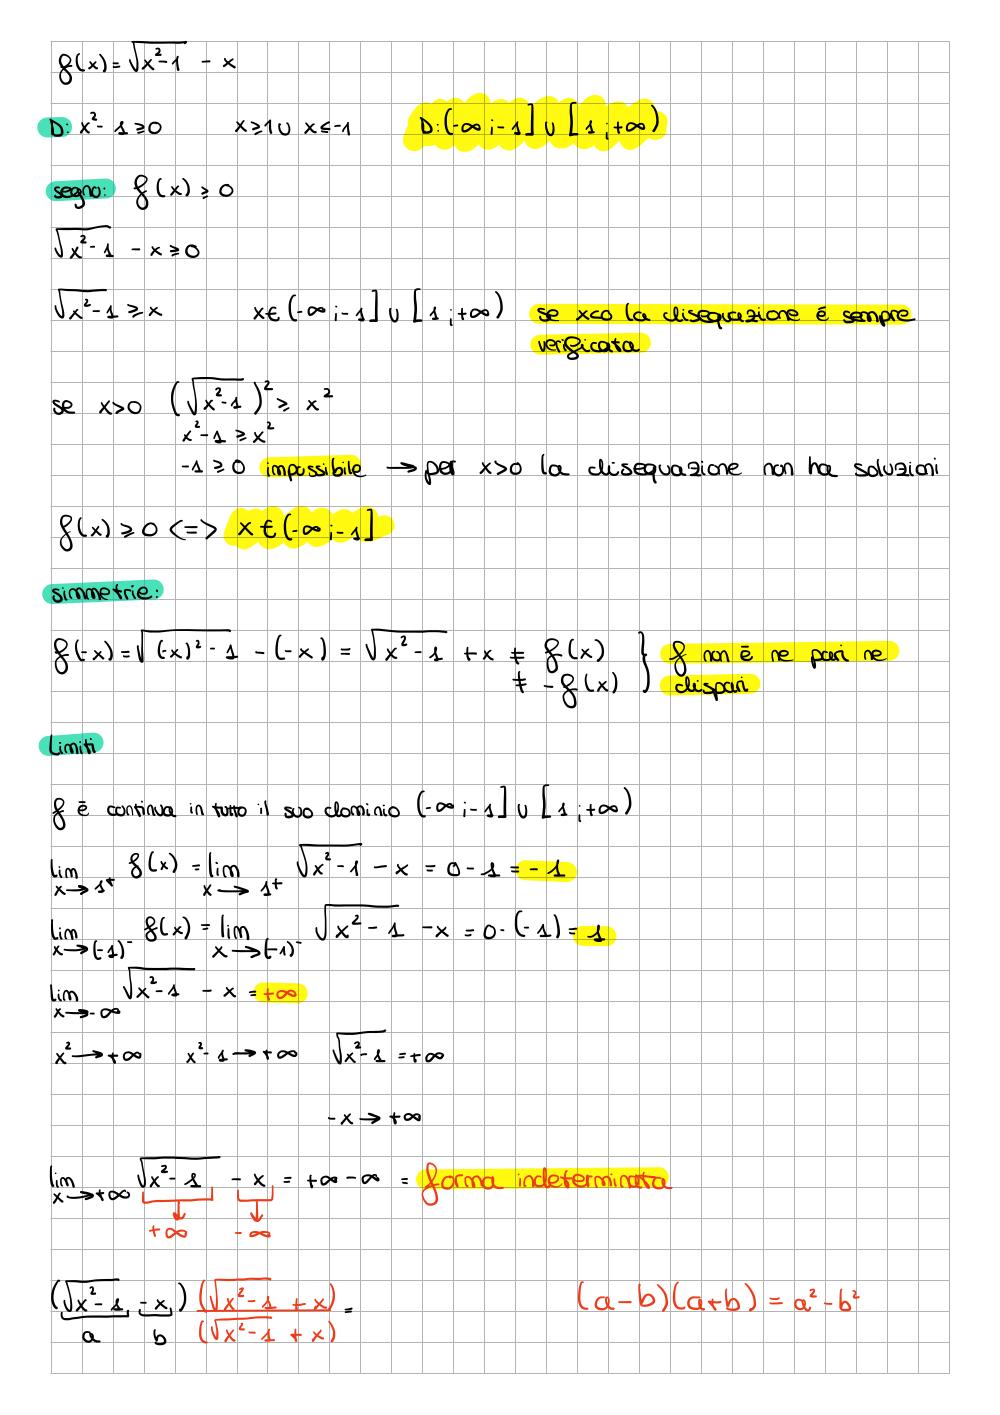 f(x) = √(x²-1) - x
D: x² - 1 ≥ 0 x ≥ 1 ∪ x ≤ -1 D: (-∞ ; -1] ∪ [1 ; +∞)
segno: f(x) ≥ 0
√(x² - 1) - x ≥ 0
√(x² - 1) ≥ x x ∈ (-∞ ; -1] ∪ [1 ; +∞) se x<0 la disequazione è sempre
verificata
se x>0 (√(x²-1))² ≥ x²
x² - 1 ≥ x²
-1 ≥ 0 impossibile → per x>0 la disequazione non ha soluzioni
f(x) ≥ 0 <=> x ∈ (-∞ ; -1]
simmetrie:
f(-x) = √((-x)² - 1) - (-x) = √(x² - 1) + x ≠ f(x) } f non è ne pari ne
≠ - f(x) dispari
Limiti
f è continua in tutto il suo dominio (-∞ ; -1] ∪ [1 ; +∞)
lim x→1⁺ f(x) = lim x→1⁺ √(x² - 1) - x = 0 - 1 = -1
lim x→(-1)⁻ f(x) = lim x→(-1)⁻ √(x² - 1) - x = 0 - (-1) = 1
lim x→-∞ √(x² - 1) - x = +∞
x² → +∞ x² - 1 → +∞ √(x² - 1) = +∞
-x → +∞
lim x→+∞ √(x² - 1) - x = +∞ - ∞ = forma indeterminata
+∞ - ∞
(√(x² - 1) - x) (√(x² - 1) + x) = (a-b)(a+b) = a² - b²
a b (√(x² - 1) + x)